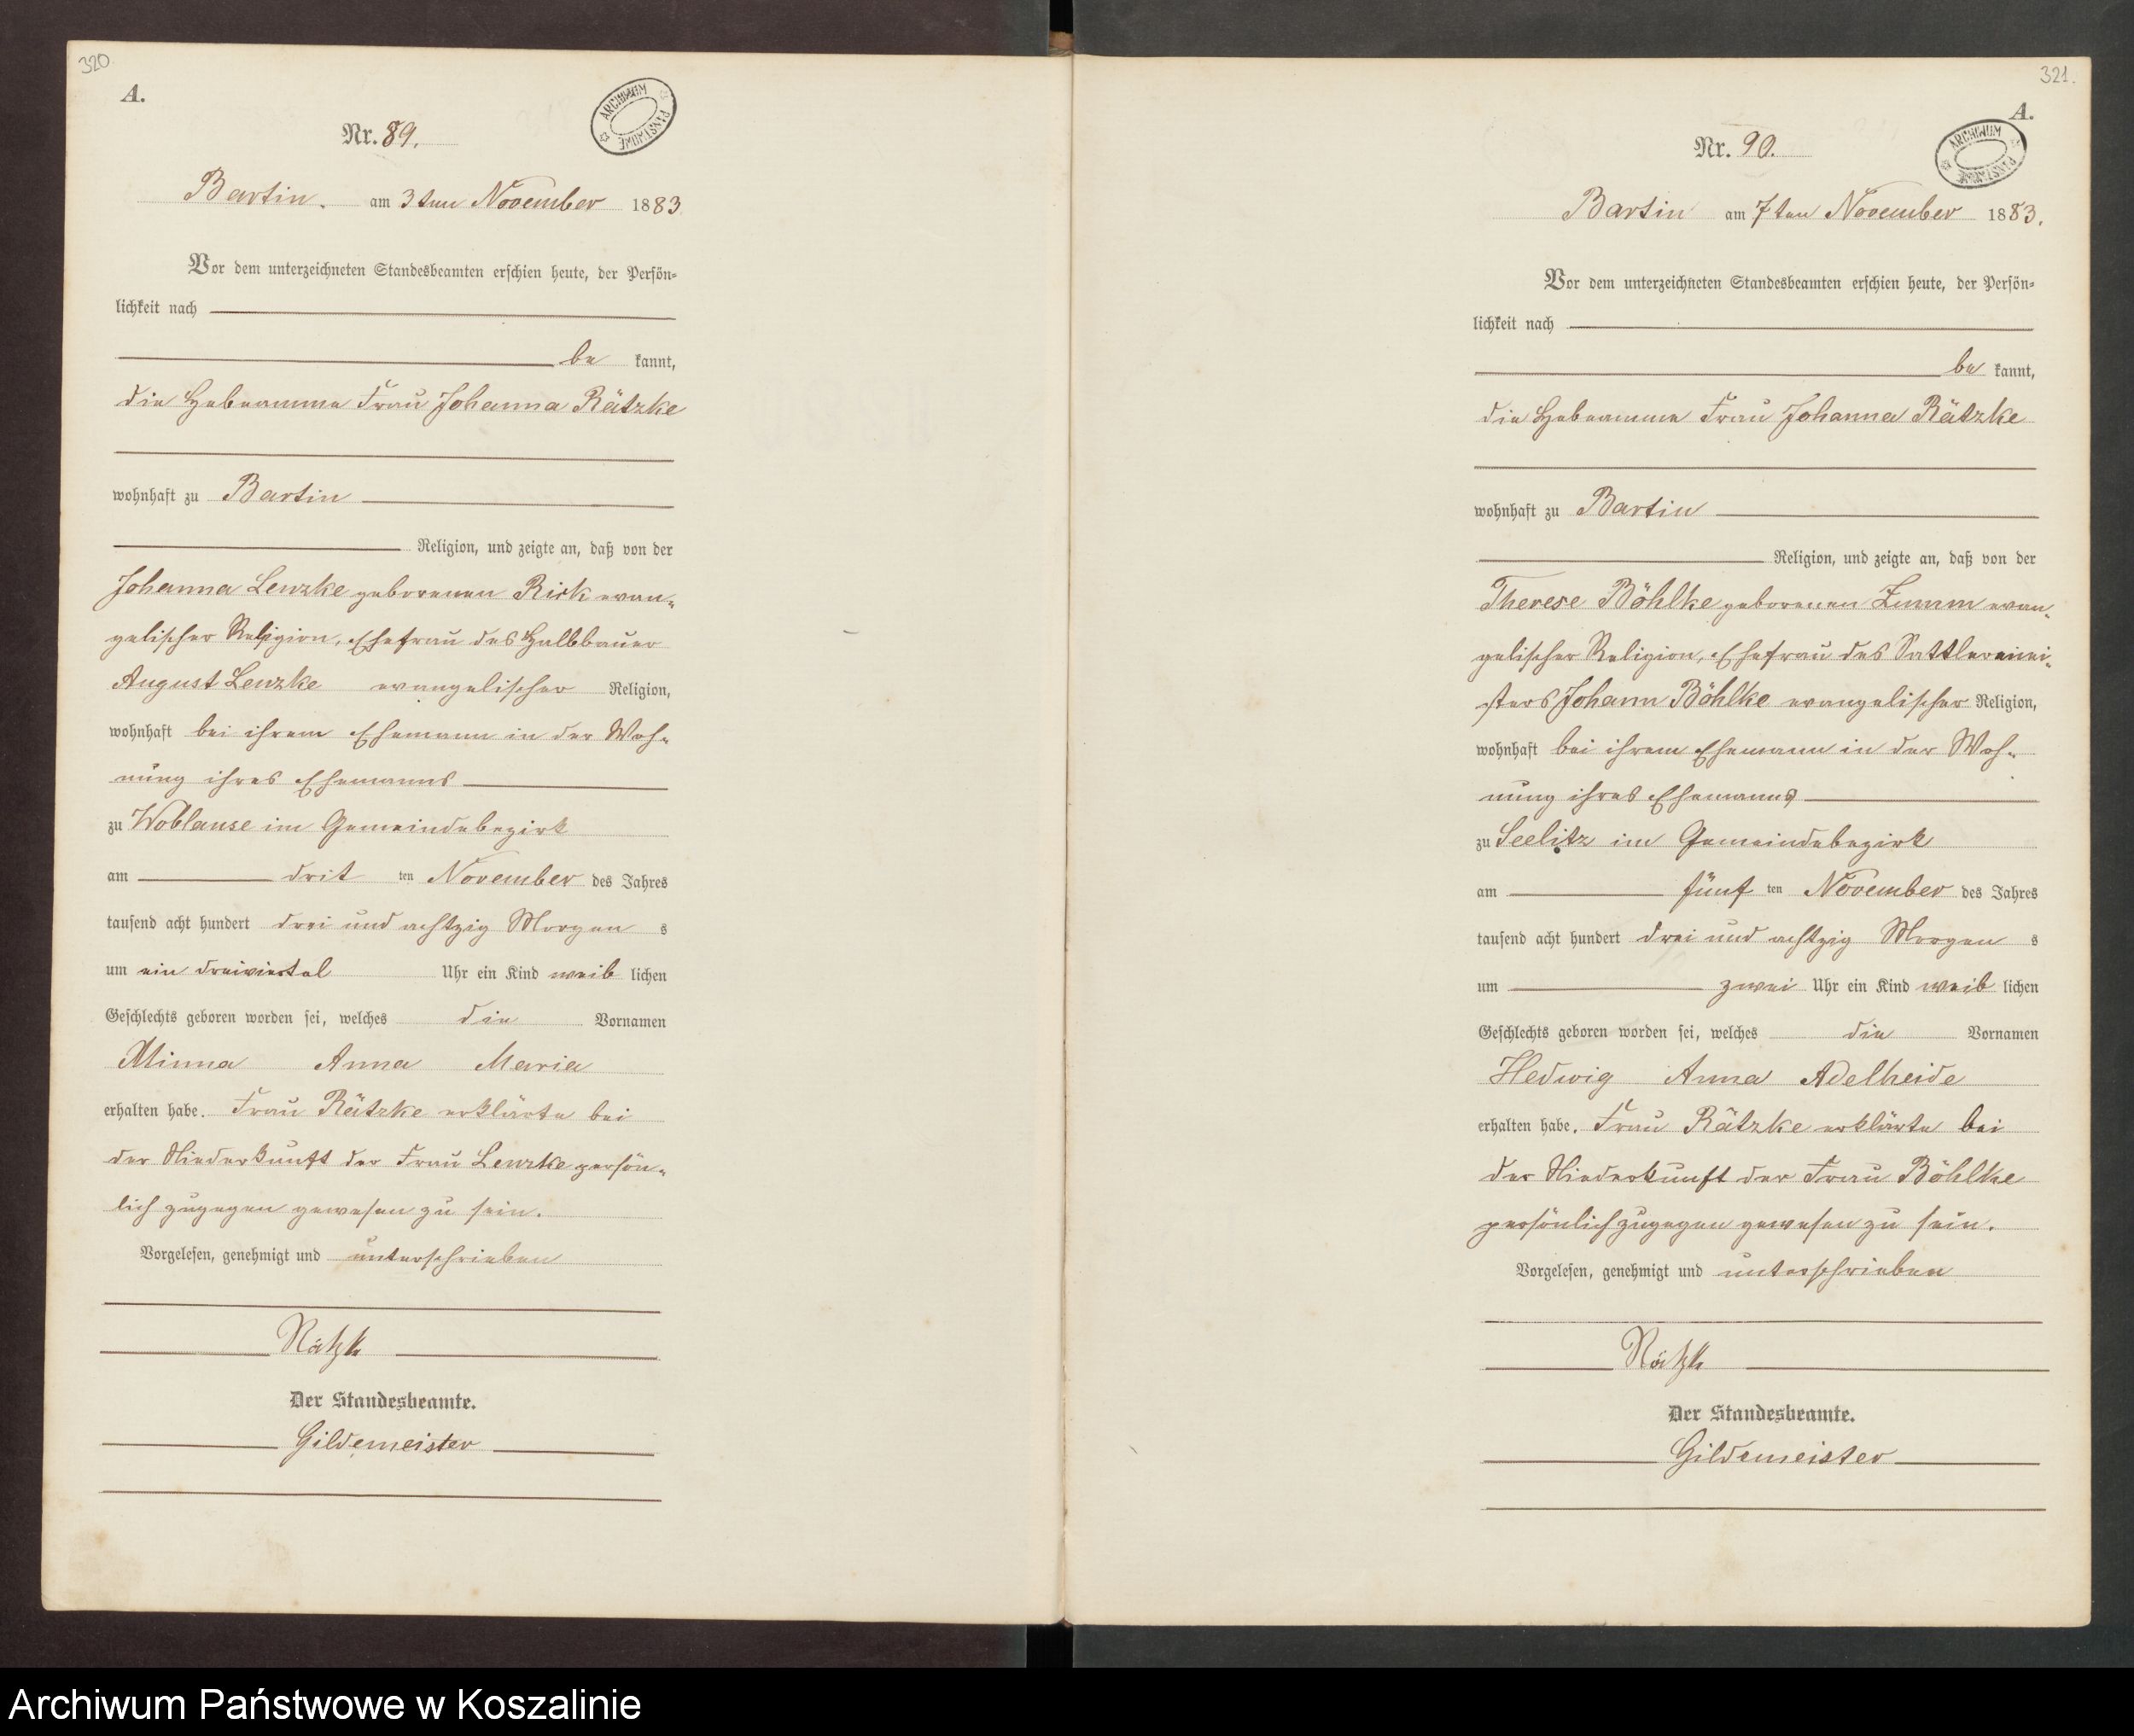 320.
A.
ARCHIWUM PAŃSTWOWE
Nr. 89.
Bartin. am 3ten November 1883
Vor dem unterzeichneten Standesbeamten erschien heute, der Persön-
lichkeit nach
be kannt,
die Hebeamme Frau Johanna Rätzke
wohnhaft zu Bartin
Religion, und zeigte an, daß von der
Johanna Lenzke geborenen Rick evan-
gelischer Religion, Ehefrau des Halbbauer
August Lenzke evangelischer Religion,
wohnhaft bei ihrem Ehemann in der Woh-
nung ihres Ehemanns
zu Woblanse im Gemeindebezirk
am drit ten November des Jahres
tausend acht hundert drei und achtzig Morgen s
um ein dreiviertel Uhr ein Kind weib lichen
Geschlechts geboren worden sei, welches die Vornamen
Minna Anna Maria
erhalten habe. Frau Rätzke erklärte bei
der Niederkunft der Frau Lenzke persön-
lich zugegen gewesen zu sein.
Vorgelesen, genehmigt und unterschrieben
Rätzk
Der Standesbeamte.
Gildemeister
321.
A.
ARCHIWUM PAŃSTWOWE
Nr. 90.
Bartin am 7ten November 1883.
Vor dem unterzeichneten Standesbeamten erschien heute, der Persön-
lichkeit nach
be kannt,
die Hebeamme Frau Johanna Rätzke
wohnhaft zu Bartin
Religion, und zeigte an, daß von der
Therese Böhlke geborenen Zumm evan-
gelischer Religion, Ehefrau des Sattlermei-
sters Johann Böhlke evangelischer Religion,
wohnhaft bei ihrem Ehemann in der Woh-
nung ihres Ehemanns
zu Seelitz im Gemeindebezirk
am fünf ten November des Jahres
tausend acht hundert drei und achtzig Morgen s
um zwei Uhr ein Kind weib lichen
Geschlechts geboren worden sei, welches die Vornamen
Hedwig Anna Adelheide
erhalten habe. Frau Rätzke erklärte bei
der Niederkunft der Frau Böhlke
persönlich zugegen gewesen zu sein.
Vorgelesen, genehmigt und unterschrieben
Rätzk
Der Standesbeamte.
Gildemeister
Archiwum Państwowe w Koszalinie